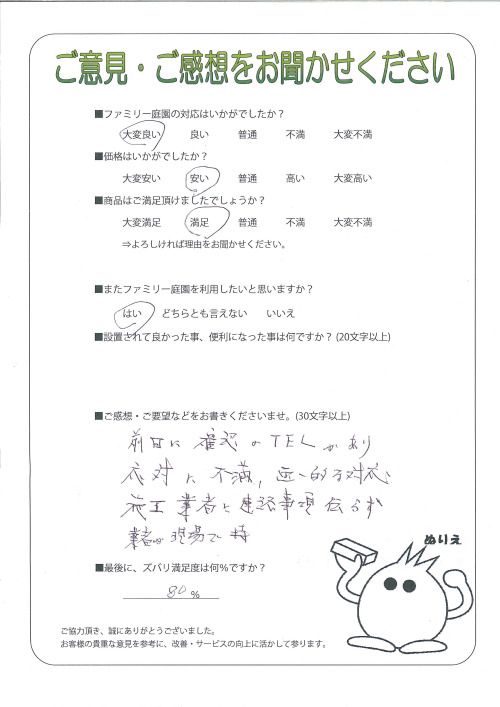 ご意見・ご感想をお聞かせください
■ファミリー庭園の対応はいかがでしたか？
大変良い 良い 普通 不満 大変不満
■価格はいかがでしたか？
大変安い 安い 普通 高い 大変高い
■商品はご満足頂けましたでしょうか？
大変満足 満足 普通 不満 大変不満
⇒よろしければ理由をお聞かせください。
■またファミリー庭園を利用したいと思いますか？
はい どちらとも言えない いいえ
■設置されて良かった事、便利になった事は何ですか？(20文字以上)
■ご感想・ご要望などをお書きくださいませ。(30文字以上)
前日に確認のTELがあり
応対に不満,
施工業者と連絡事項伝らず
業者は現場で待
ぬりえ
■最後に、ズバリ満足度は何%ですか？
80 %
ご協力頂き、誠にありがとうございました。
お客様の貴重な意見を参考に、改善・サービスの向上に活かして参ります。